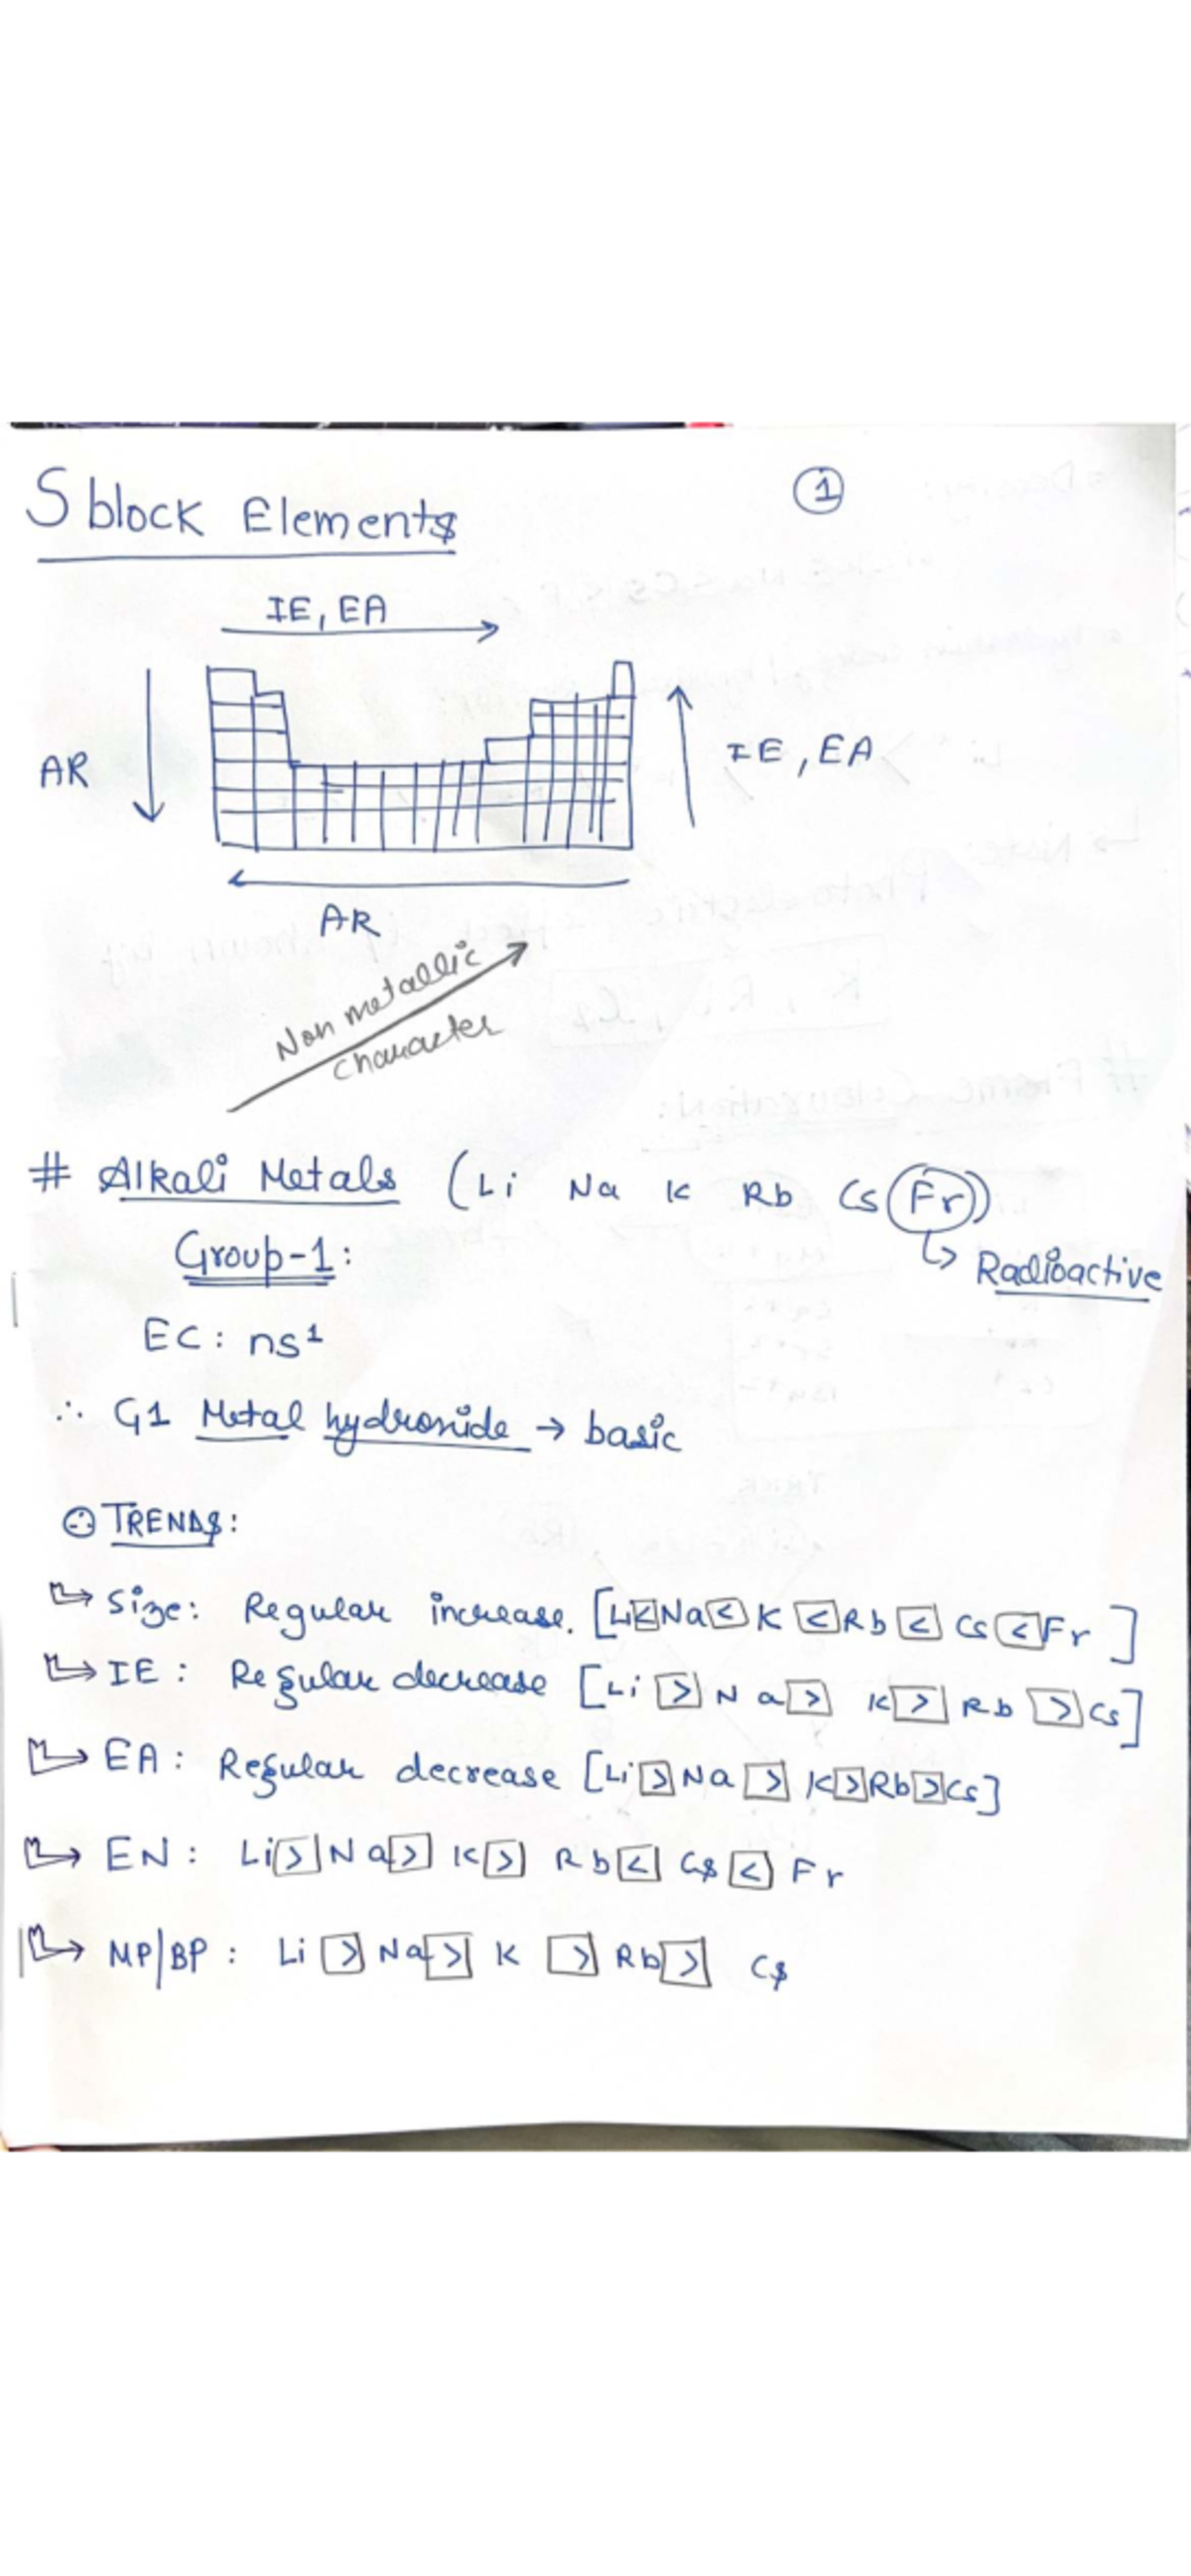 S block Elements
1
IE, EA
AR
IE, EA
AR
Non metallic
character
# Alkali Metals (Li Na K Rb Cs Fr)
↳ Radioactive
Group-1:
EC: ns¹
∴ G1 Metal hydroxide → basic
TRENDS:
↳ Size: Regular increase. [Li<Na<K<Rb<Cs<Fr]
↳ IE: Regular decrease [Li>Na>K>Rb>Cs]
↳ EA: Regular decrease [Li>Na>K>Rb>Cs]
↳ EN: Li>Na>K>Rb<Cs<Fr
↳ MP/BP: Li>Na>K>Rb>Cs